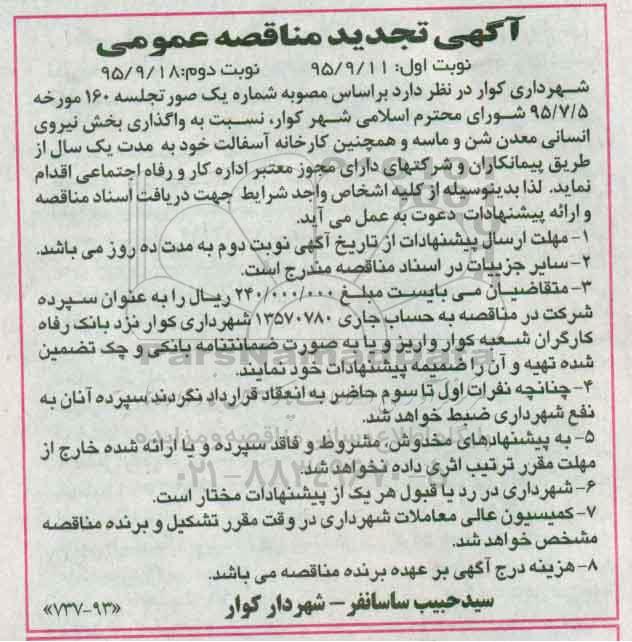 آگهی تجدید مناقصه عمومی
نوبت اول: ۹۵/۹/۱۱ نوبت دوم: ۹۵/۹/۱۸
شهرداری کوار در نظر دارد براساس مصوبه شماره یک صورتجلسه ۱۶۰ مورخه
۹۵/۷/۵ شورای محترم اسلامی شهر کوار، نسبت به واگذاری بخش نیروی
انسانی معدن شن و ماسه و همچنین کارخانه آسفالت خود به مدت یک سال از
طریق پیمانکاران و شرکتهای دارای مجوز معتبر اداره کار و رفاه اجتماعی اقدام
نماید. لذا بدینوسیله از کلیه اشخاص واجد شرایط جهت دریافت اسناد مناقصه
و ارائه پیشنهادات دعوت به عمل می آید.
۱- مهلت ارسال پیشنهادات از تاریخ آگهی نوبت دوم به مدت ده روز می باشد.
۲- سایر جزییات در اسناد مناقصه مندرج است.
۳- متقاضیان می بایست مبلغ ۲۴۰/۰۰۰/۰۰۰ ریال را به عنوان سپرده
شرکت در مناقصه به حساب جاری ۱۳۵۷۰۷۸۰ شهرداری کوار نزد بانک رفاه
کارگران شعبه کوار واریز و یا به صورت ضمانتنامه بانکی و چک تضمین
شده تهیه و آن را ضمیمه پیشنهادات خود نمایند.
۴- چنانچه نفرات اول تا سوم حاضر به انعقاد قرارداد نگردند سپرده آنان به
نفع شهرداری ضبط خواهد شد.
۵- به پیشنهادهای مخدوش، مشروط و فاقد سپرده و یا ارائه شده خارج از
مهلت مقرر ترتیب اثری داده نخواهد شد.
۶- شهرداری در رد یا قبول هر یک از پیشنهادات مختار است.
۷- کمیسیون عالی معاملات شهرداری در وقت مقرر تشکیل و برنده مناقصه
مشخص خواهد شد.
۸- هزینه درج آگهی بر عهده برنده مناقصه می باشد.
سیدحبیب ساسانفر – شهردار کوار «۷۳۷-۹۳»
ParsNamadData